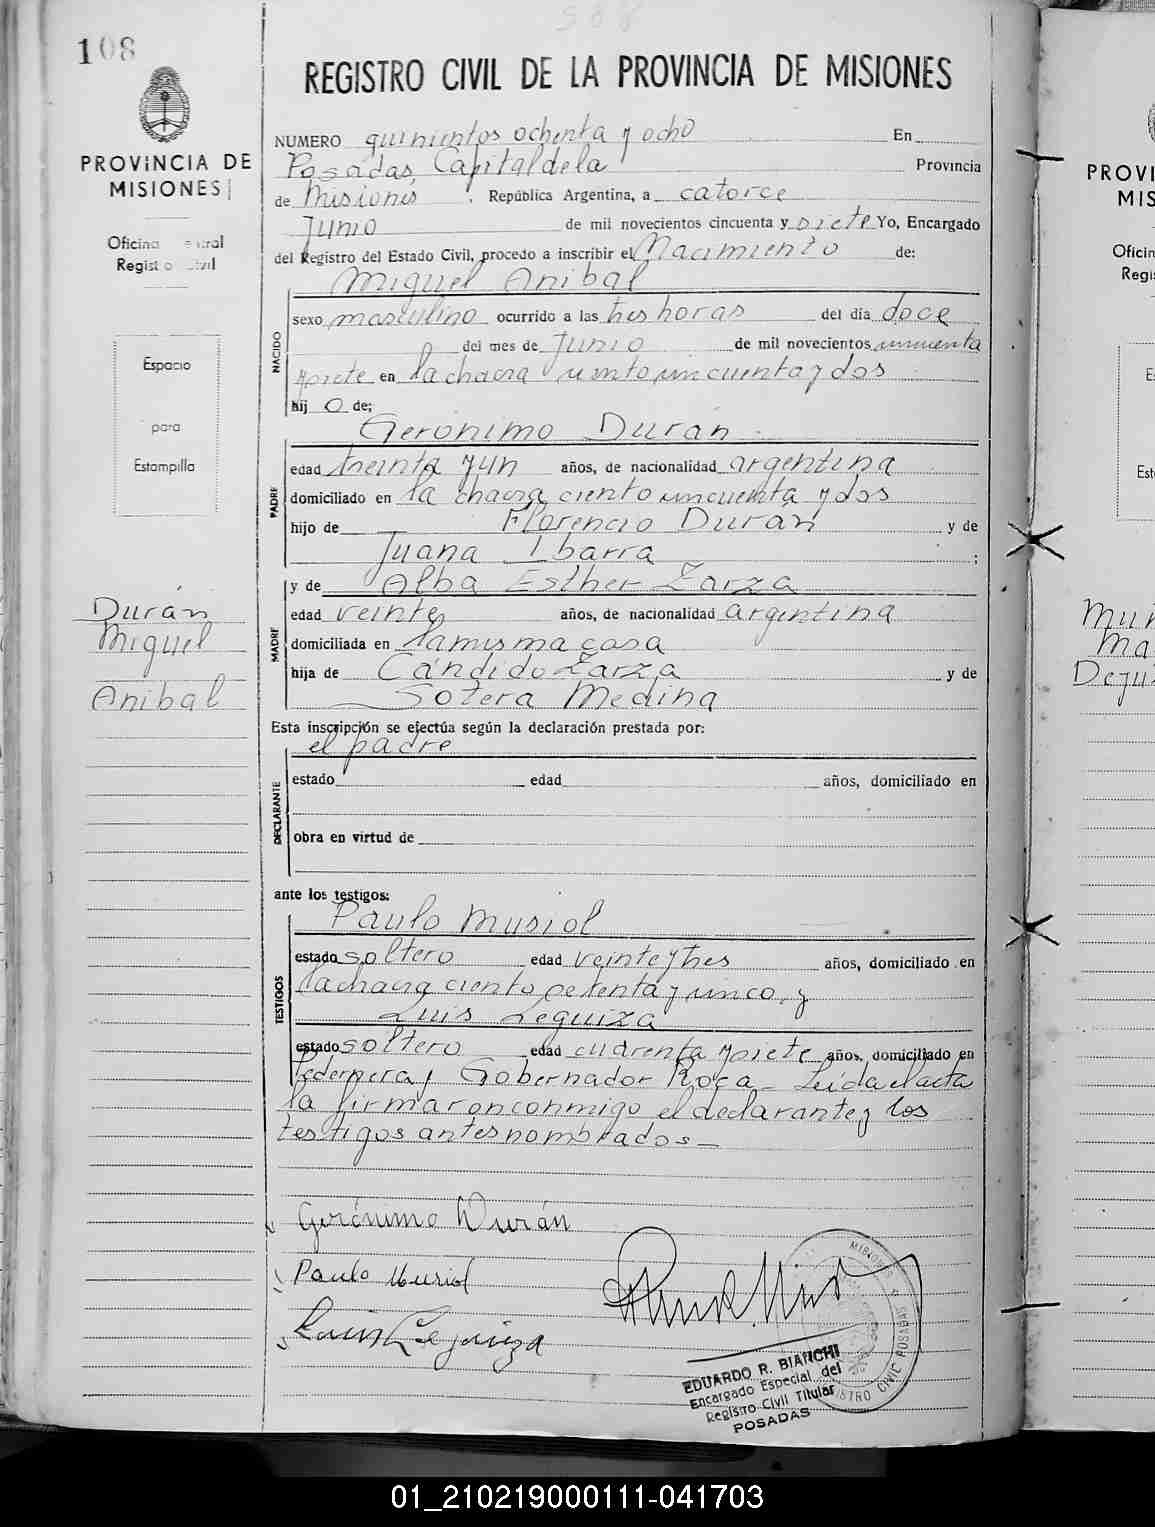 588
108
PROVINCIA DE
MISIONES
Oficina Central
Registro Civil
Espacio
para
Estampilla
Durán
Miguel
Anibal
REGISTRO CIVIL DE LA PROVINCIA DE MISIONES
NUMERO quinientos ochenta y ocho En
Posadas Capital de la Provincia
de Misiones, República Argentina, a catorce
Junio de mil novecientos cincuenta y siete Yo, Encargado
del Registro del Estado Civil, procedo a inscribir el Nacimiento de:
Miguel Anibal
NACIDO
sexo masculino ocurrido a las tres horas del día doce
del mes de Junio de mil novecientos cincuenta
y siete en la chacra ciento cincuenta y dos
hij o de;
Gerónimo Durán
PADRE
edad treinta y un años, de nacionalidad argentina
domiciliado en la chacra ciento cincuenta y dos
hijo de Florencio Durán y de
Juana Ibarra ;
y de Alba Esther Zarza
MADRE
edad veinte años, de nacionalidad argentina
domiciliada en la misma casa
hija de Cándido Zarza y de
Sotera Medina
Esta inscripción se efectúa según la declaración prestada por:
el padre
DECLARANTE
estado edad años, domiciliado en
obra en virtud de
ante los testigos:
Paulo Musiol
TESTIGOS
estado soltero edad veinte y tres años, domiciliado en
la chacra ciento setenta y cinco, y
Luis Leguiza
estado soltero edad cuarenta y siete años, domiciliado en
Pedernera y Gobernador Roca - Leida el acta
la firmaron conmigo el declarante y los
testigos antes nombrados -
Gerónimo Durán
Paulo Musiol
Luis Leguiza
MISIONES
REGISTRO CIVIL POSADAS
EDUARDO R. BIANCHI
Encargado Especial del
Registro Civil Titular
POSADAS
PROVI
MIS
Oficin
Regi
E
Est
Ma
01_210219000111-041703